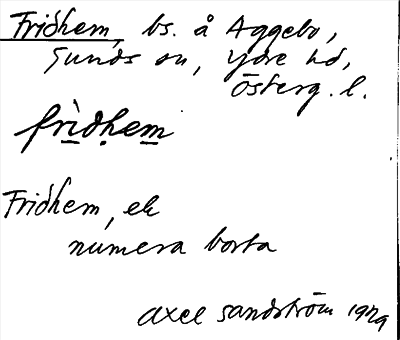 Fridhem, bs. å Aggebo,
Sunds sn, Ydre hd,
Österg. l.
frìdhem
Fridhem, ek
numera borta
Axel Sandström 1929